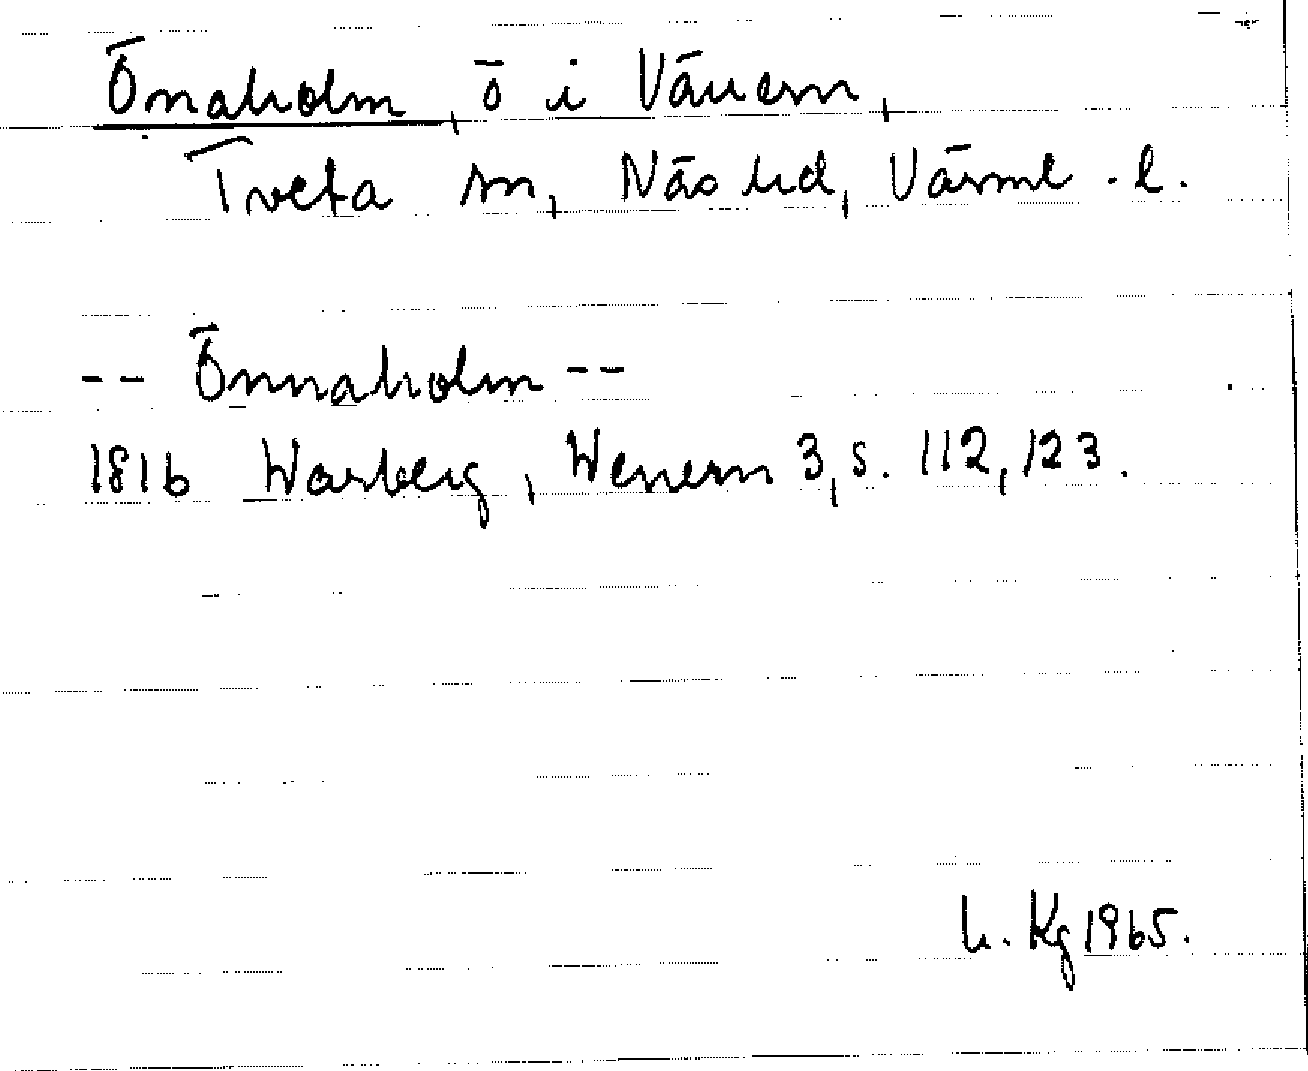 Önaholm, ö i Vänern,
Tveta sn, Näs hd, Värml. l.
-- Önnaholm --
1816 Warberg, Wenern 3, s. 112, 123.
h. Kg 1965.